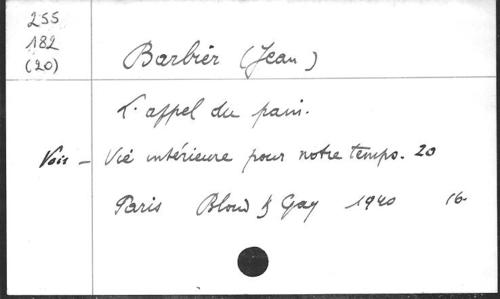 255
182
(20)
Barbier (Jean)
L'appel du pain.
Voir – Vie intérieure pour notre temps. 20
Paris Bloud & Gay 1940 16